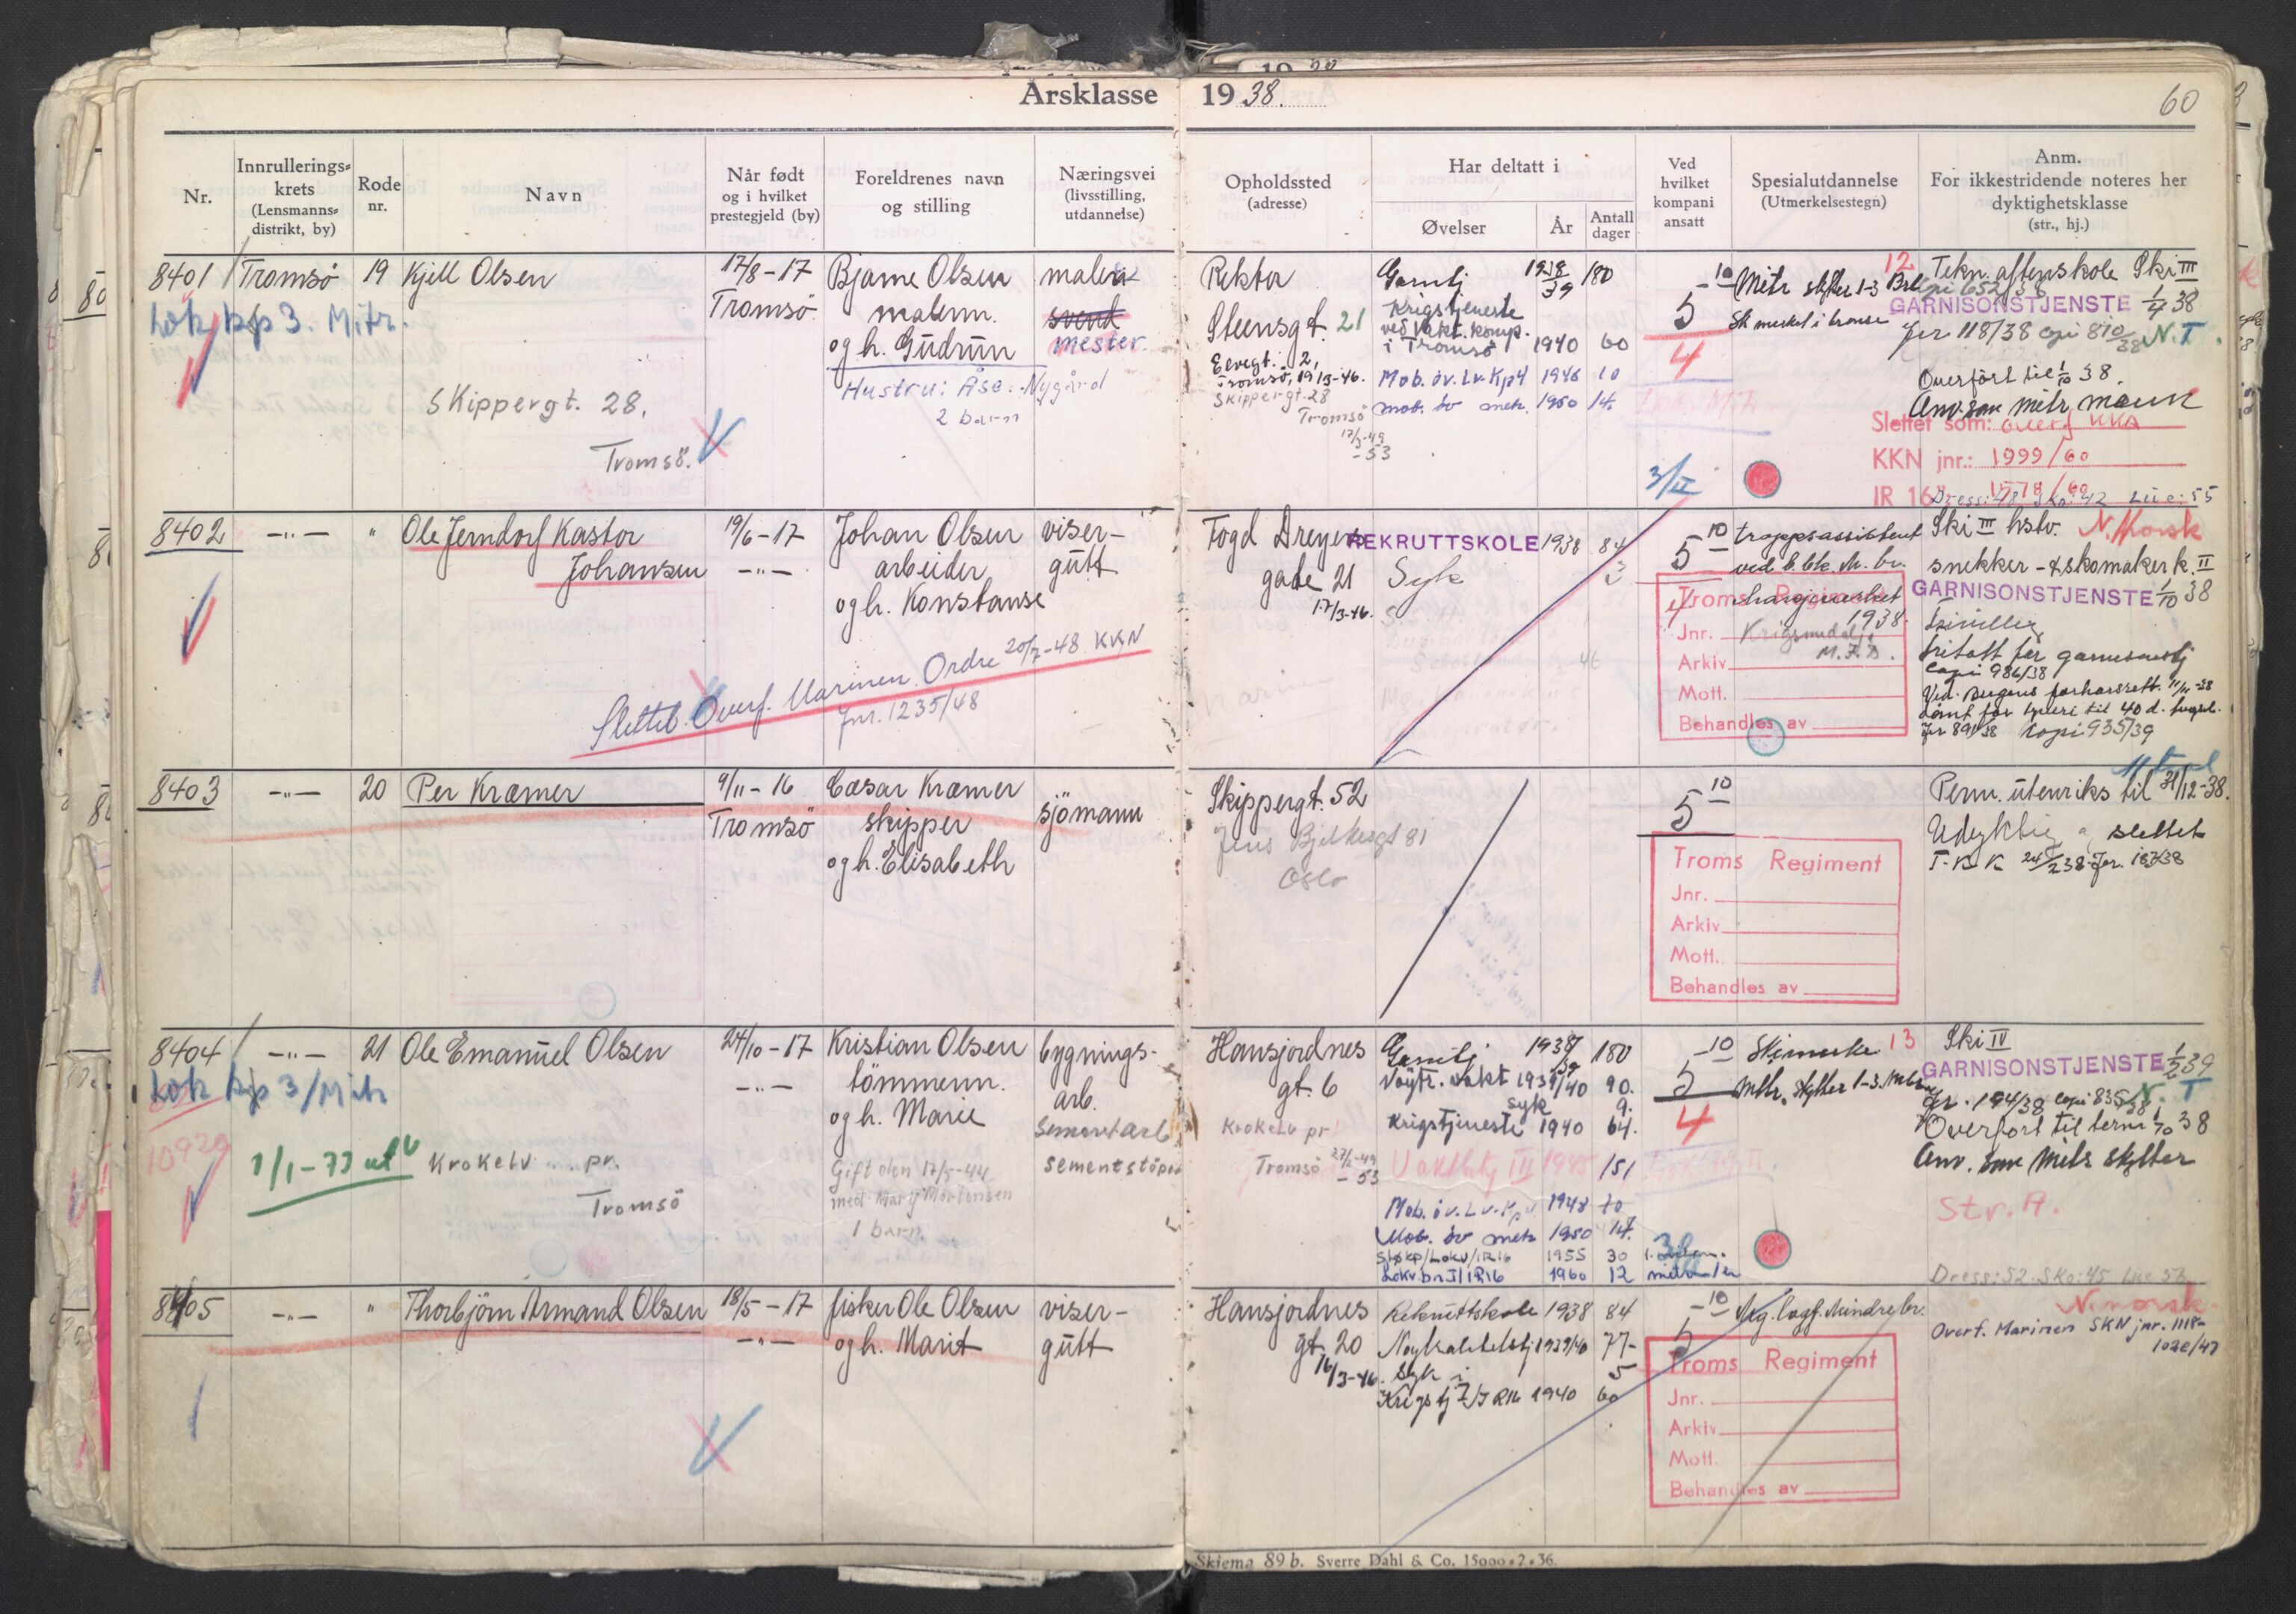 Årsklasse 1938.
60
Nr.
Innrullerings=
krets
(Lensmanns=
distrikt, by)
Rode
nr.
Navn
Når født
og i hvilket
prestegjeld (by)
Foreldrenes navn
og stilling
Næringsvei
(livsstilling,
utdannelse)
Opholdssted
(adresse)
Har deltatt i
Øvelser
År
Antall
dager
Ved
hvilket
kompani
ansatt
Spesialutdannelse
(Utmerkelsestegn)
Anm.
For ikkestridende noteres her
dyktighetsklasse
(str., hj.)
8401 Tromsö 19 Kjell Olsen
Lok kp 3. Mitr.
Skippergt. 28,
Tromsö.
17/8-17
Tromsö
Bjarne Olsen
malerm.
og h. Gudrun
Hustru: Åse Nygård
2 barn
maler
svend
mester.
Rektor
Steensgt. 21
Elvegt. 2,
Tromsö, 19/3-46.
Skippergt. 28
Tromsö
17/3-49
-53
Garntj 1938/39 180
Krigstjeneste
ved vakt. komp.
i Tromsö 1940 60
Mob. öv. Lv. Kp 4 1948 10
Mob. öv mitr. 1950 14
10
5
4
3/II
Mitr skytter 1-3
12
Tekn. aftenskole Ski III
GARNISONSTJENSTE 1/4 38
Jnr 118/38 copi 810/38 N.T.
Overfört til 1/10 38.
Anv. som mitr mann
Slettet som:
KKN jnr.: 1999/60
IR 16
Dress: 48 Sko: 42 Lue: 55
8402 -"- " Ole Jerndorf Kastor
Johansen
19/6-17
-"-
Johan Olsen
arbeider
og h. Konstanse
viser-
gutt
Slettet. Overf. Marinen. Ordre 20/7-48 KKN
Jnr. 1235/48
Fogd Dreyers
gade 21
17/3-46.
REKRUTTSKOLE 1938 84
Syk 2
10
5
troppsassistent
1938.
Krigsmedalje
Troms Regiment
Jnr.
Arkiv
Mott.
Behandles av
Ski III hstv. N. Norsk
snekker- & skomaker k. II
GARNISONSTJENSTE 1/10 38
fritatt for garnisonstj
Copi 986/38
til 40 d. fengsl.
Jnr 891/38 Kopi 935/39
8403 -"- 20 Per Kræmer
9/11-16
Tromsö
Cæsar Kræmer
skipper
og h. Elisabeth
sjömann
Skippergt. 52
Jens Bjelkesgt 81
Oslo
10
5
Troms Regiment
Jnr.
Arkiv
Mott.
Behandles av
Perm. utenriks til 31/12-38.
Udyktig slettet
T.K.K 24/2 38 Jnr. 187/38
8404 -"- 21 Ole Emanuel Olsen
Lok kp 3/Mitr
10929
1/1-73 ut
Krokelv pr.
Tromsö
24/10-17
-"-
Kristian Olsen
tömmerm.
og h. Marie
Gift den 17/5-44
med Mary Mortensen
1 barn.
bygnings-
arb.
Sementarb
sementstöper
Hansjordnes
gt. 6
Krokelv pr
Tromsö 22/2-49
-53
Garntj 1938/39 180
Nöytr. vakt 1939/40 90.
syk 9.
Krigstjeneste 1940 64.
Vakttj III 1945 151
Mob. öv. Lv. Kp 1948 10
Mob. öv mitr 1950 14.
Stökp/Lokv/IR16 1955 30
Lokv.bn I/IR16 1960 12
10
5
4
Skimerke 13
Mitr. skytter 1-3.
Ski IV
GARNISONSTJENSTE 1/2 39
Jnr. 194/38 copi 835/38 N. T
Overfört til term 1/10 38
Anv. som Mitr skytter
Str. A.
Dress: 52 Sko: 45 Lue 57
8405 -"- " Thorbjörn Armand Olsen
18/5-17
-"-
fisker Ole Olsen
og h. Marit
viser-
gutt
Hansjordnes
gt. 20
16/3-46.
Rekruttskole 1938 84
1939/40 77-
Syk 5
Krigstj I/IR16 1940 60
10
5
Troms Regiment
Jnr.
Arkiv
Mott.
Behandles av
N. norsk.
Overf. Marinen SKN jnr. 1118-
1020/47
Skjema 89 b. Sverre Dahl & Co. 15000*2*36.